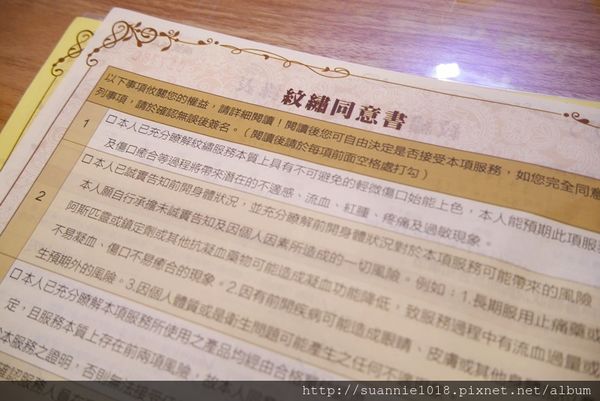 紋繡同意書
以下事項依關您的權益，請詳細閱讀！閱讀後您可自由決定是否接受本項服務，如您完全同意
列事項，請於確認無誤後簽名。（閱讀後請於每項前面空格處打勾）
1
□本人已充分瞭解紋繡服務本質上具有不可避免的輕微傷口始能上色，本人能預期此項服
及傷口癒合等過程將帶來潛在的不適感、流血、紅腫、疼痛及過敏現象。
2
□本人已誠實告知前開身體狀況，並充分瞭解前開身體狀況對於本項服務可能帶來的風險
本人願自行承擔未誠實告知及因個人因素所造成的一切風險。例如：1.長期服用止痛藥或
阿斯匹靈或鎮定劑或其他抗凝血藥物可能造成凝血功能降低，致服務過程中有流血過量或
不易凝血、傷口不易癒合的現象。2.因有前開疾病可能造成眼睛、皮膚或其他身
生預期外的風險。3.因個人體質或是衛生問題可能產生之任何不
□本人已充分瞭解本項服務所使用之產品均經由合格
定，且服務本質上存在前兩項風險，故本人
本服務之證明，否則無法
http://suannie1018.pixnet.net/album